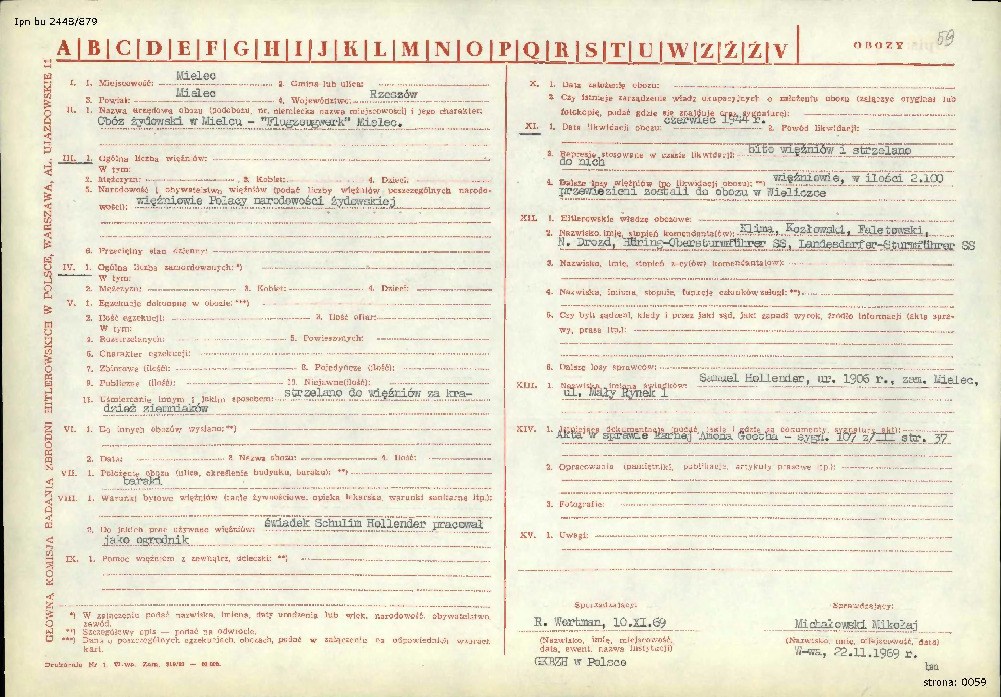 Ipn bu 2448/879
A|B|C|D|E|F|G|H|I|J|K|L|M|N|O|P|Q|R|S|T|U|W|Z|Ż|Ź|V
OBOZY
59
GŁÓWNA KOMISJA BADANIA ZBRODNI HITLEROWSKICH W POLSCE, WARSZAWA, AL. UJAZDOWSKIE 11
I. 1. Miejscowość: Mielec 2. Gmina lub ulica:
3. Powiat: Mielec 4. Województwo: Rzeszów
II. 1. Nazwa urzędowa obozu (podobozu, nr, niemiecka nazwa miejscowości) i jego charakter:
Obóz żydowski w Mielcu - "Flugzeugwerk" Mielec.
III. 1. Ogólna liczba więźniów:
W tym:
2. Mężczyzn: 3. Kobiet: 4. Dzieci:
5. Narodowość i obywatelstwo więźniów (podać liczby więźniów poszczególnych narodo-
wości): więźniowie Polacy narodowości żydowskiej
6. Przeciętny stan dzienny:
IV. 1. Ogólna liczba zamordowanych: *)
W tym:
2. Mężczyzn: 3. Kobiet: 4. Dzieci:
V. 1. Egzekucje dokonane w obozie: ***)
2. Ilość egzekucji: 3. Ilość ofiar:
W tym:
4. Rozstrzelanych: 5. Powieszonych:
6. Charakter egzekucji:
7. Zbiorowe (ilość): 8. Pojedyńcze (ilość):
9. Publiczne (ilość): 10. Niejawne(ilość):
11. Uśmiercanie innym i jakim sposobem: strzelano do więźniów za kra-
dzież ziemniaków
VI. 1. Do innych obozów wysłano: **)
2. Data: 3. Nazwa obozu: 4. Ilość:
VII. 1. Położenie obozu (ulica, określenie budynku, baraku): **)
baraki
VIII. 1. Warunki bytowe więźniów (racje żywnościowe, opieka lekarska, warunki sanitarne itp.):
2. Do jakich prac używano więźniów: świadek Schulim Hollender pracował
jako ogrodnik
IX. 1. Pomoc więźniom z zewnątrz, ucieczki: **)
*) W załączeniu podać nazwiska, imiona, daty urodzenia lub wiek, narodowość, obywatelstwo,
zawód.
**) Szczegółowy opis — podać na odwrocie.
***) Dane o poszczególnych egzekucjach, obozach, podać w załączeniu na odpowiednich wzorach
kart.
Drukarnia Nr 1, W-wa. Zam.
X. 1. Data założenia obozu:
2. Czy istnieje zarządzenie władz okupacyjnych o założeniu obozu (załączyć oryginał lub
fotokopię, podać gdzie się znajduje oraz sygnaturę):
XI. 1. Data likwidacji obozu: czerwiec 1944 r. 2. Powód likwidacji:
3. Represje stosowane w czasie likwidacji: bito więźniów i strzelano
do nich
4. Dalsze losy więźniów (po likwidacji obozu): **) więźniowie, w ilości 2.100
przewiezieni zostali do obozu w Wieliczce
XII. 1. Hitlerowskie władze obozowe:
2. Nazwisko, imię, stopień komendanta(ów): Klima, Kozłowski, Faletowski,
N. Drozd, Hüring-Obersturmführer SS, Landesdorfer-Sturmführer SS
3. Nazwisko, imię, stopień z-cy(ów) komendanta(ów):
4. Nazwiska, imiona, stopnie, funkcje członków załogi: **)
5. Czy byli sądzeni, kiedy i przez jaki sąd, jaki zapadł wyrok, źródło informacji (akta spra-
wy, prasa itp.):
6. Dalsze losy sprawców:
XIII. 1. Nazwiska, imiona świadków: Samuel Hollender, ur. 1906 r., zam. Mielec,
ul. Mały Rynek 1
XIV. 1. Istniejąca dokumentacja (podać jaka i gdzie są dokumenty, sygnatury akt):
Akta w sprawie karnej Amona Goetha - sygn. 107 z/III str. 37
2. Opracowania (pamiętniki, publikacje, artykuły prasowe itp.):
3. Fotografie:
XV. 1. Uwagi:
Sporządzający:
R. Wortman, 10.XI.69
(Nazwisko, imię, miejscowość,
data, ewent. nazwa instytucji)
GKBZH w Polsce
Sprawdzający:
Michałowski Mikołaj
(Nazwisko, imię, miejscowość, data)
W-wa, 22.11.1969 r.
strona: 0059